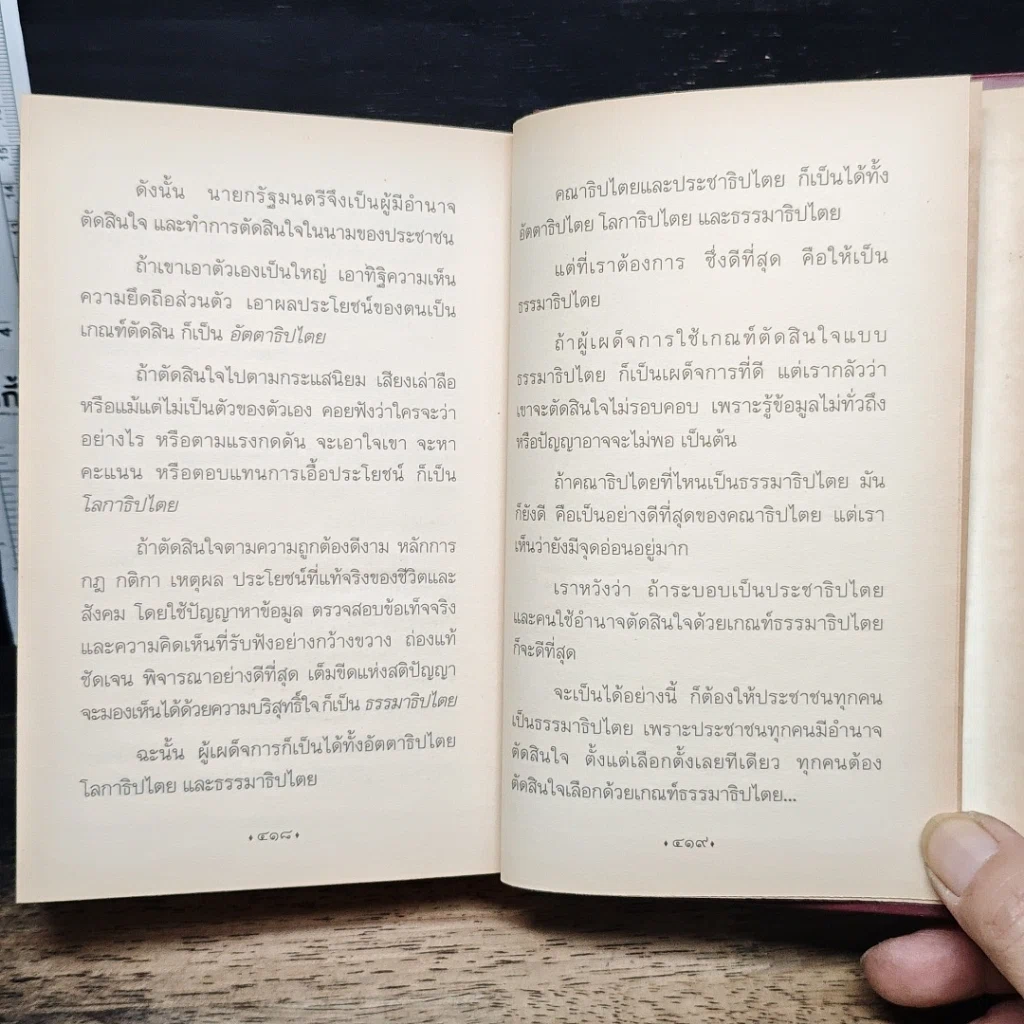 ดังนั้น นายกรัฐมนตรีจึงเป็นผู้มีอำนาจ
ตัดสินใจ และทำการตัดสินใจในนามของประชาชน
ถ้าเขาเอาตัวเองเป็นใหญ่ เอาทิฐิความเห็น
ความยึดถือส่วนตัว เอาผลประโยชน์ของตนเป็น
เกณฑ์ตัดสิน ก็เป็น อัตตาธิปไตย
ถ้าตัดสินใจไปตามกระแสนิยม เสียงเล่าลือ
หรือแม้แต่ไม่เป็นตัวของตัวเอง คอยฟังว่าใครจะว่า
อย่างไร หรือตามแรงกดดัน จะเอาใจเขา จะหา
คะแนน หรือตอบแทนการเอื้อประโยชน์ ก็เป็น
โลกาธิปไตย
ถ้าตัดสินใจตามความถูกต้องดีงาม หลักการ
กฎ กติกา เหตุผล ประโยชน์ที่แท้จริงของชีวิตและ
สังคม โดยใช้ปัญญาหาข้อมูล ตรวจสอบข้อเท็จจริง
และความคิดเห็นที่รับฟังอย่างกว้างขวาง ถ่องแท้
ชัดเจน พิจารณาอย่างดีที่สุด เต็มขีดแห่งสติปัญญา
จะมองเห็นได้ด้วยความบริสุทธิ์ใจ ก็เป็น ธรรมาธิปไตย
ฉะนั้น ผู้เผด็จการก็เป็นได้ทั้งอัตตาธิปไตย
โลกาธิปไตย และธรรมาธิปไตย
• ๔๑๘ •
คณาธิปไตยและประชาธิปไตย ก็เป็นได้ทั้ง
อัตตาธิปไตย โลกาธิปไตย และธรรมาธิปไตย
แต่ที่เราต้องการ ซึ่งดีที่สุด คือให้เป็น
ธรรมาธิปไตย
ถ้าผู้เผด็จการใช้เกณฑ์ตัดสินใจแบบ
ธรรมาธิปไตย ก็เป็นเผด็จการที่ดี แต่เรากลัวว่า
เขาจะตัดสินใจไม่รอบคอบ เพราะรู้ข้อมูลไม่ทั่วถึง
หรือปัญญาอาจจะไม่พอ เป็นต้น
ถ้าคณาธิปไตยที่ไหนเป็นธรรมาธิปไตย มัน
ก็ยังดี คือเป็นอย่างดีที่สุดของคณาธิปไตย แต่เรา
เห็นว่ายังมีจุดอ่อนอยู่มาก
เราหวังว่า ถ้าระบอบเป็นประชาธิปไตย
และคนใช้อำนาจตัดสินใจด้วยเกณฑ์ธรรมาธิปไตย
ก็จะดีที่สุด
จะเป็นได้อย่างนี้ ก็ต้องให้ประชาชนทุกคน
เป็นธรรมาธิปไตย เพราะประชาชนทุกคนมีอำนาจ
ตัดสินใจ ตั้งแต่เลือกตั้งเลยทีเดียว ทุกคนต้อง
ตัดสินใจเลือกด้วยเกณฑ์ธรรมาธิปไตย...
• ๔๑๙ •